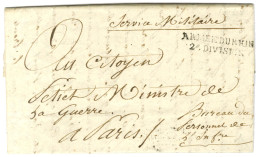 Service Militaire
ARMÉE DU RHIN
2e DIVISION
Au Citoyen
Petiet Ministre de
la Guerre
a Paris
Bureau du
Personnel de
l'Infrie